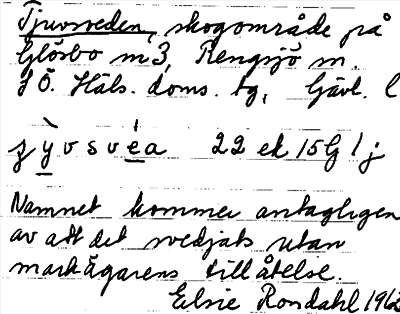 Tjuvsveden, skogområde på
Glösbo m 3, Rengsjö m.
S Ö. Häls. doms. tg, Gävl. l
Namnet kommer antagligen
av att det svedjats utan
markägarens tillåtelse.
Elsie Rondahl 1962